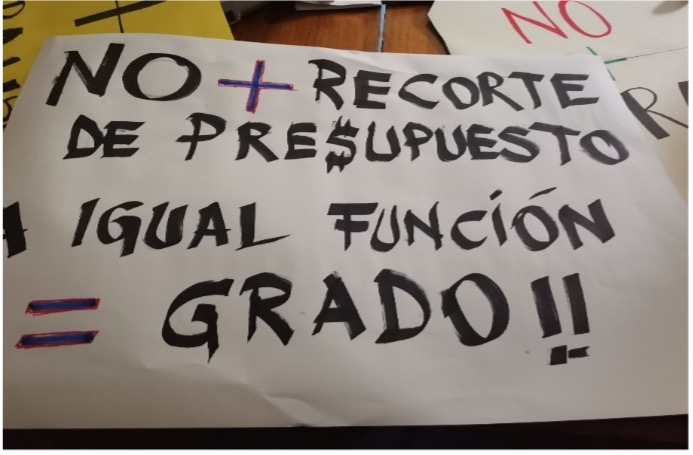 NO + RECORTE
DE PRE$UPUESTO
A IGUAL FUNCIÓN
= GRADO!!
NO
+